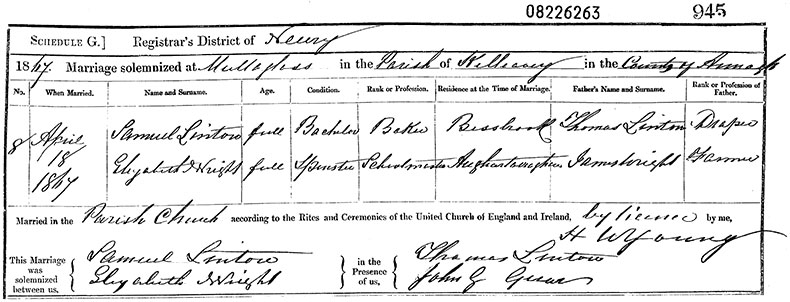 08226263 945
SCHEDULE G.] Registrar's District of Newry
1867. Marriage solemnized at Mullaglass in the Parish of Killeavy in the County of Armagh
No. When Married. Name and Surname. Age. Condition. Rank or Profession. Residence at the Time of Marriage. Father's Name and Surname. Rank or Profession of Father.
8 April 18 1867 Samuel Linton full Bachelor Baker Bessbrook Thomas Linton Draper
Elizabeth Wright full Spinster Schoolmistress James Wright Farmer
Married in the Parish Church according to the Rites and Ceremonies of the United Church of England and Ireland, by licence by me,
H W Young
This Marriage was solemnized between us, { Samuel Linton } in the Presence of us, { Thomas Linton
Elizabeth Wright John G